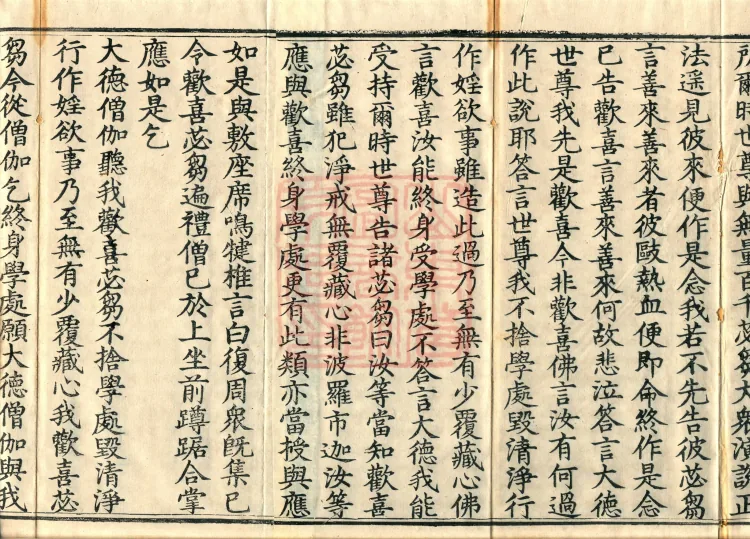 所爾時世尊與無量百千苾芻大衆演說正
法遥見彼來便作是念我若不先告彼苾芻
言善來善來者彼歐熱血便即命終作是念
已告歡喜言善來善來何故悲泣答言大德
世尊我先是歡喜今非歡喜佛言汝有何過
作此說耶答言世尊我不捨學處毀清淨行
作婬欲事雖造此過乃至無有少覆藏心佛
言歡喜汝能終身受學處不答言大德我能
受持爾時世尊告諸苾芻曰汝等當知歡喜
苾芻雖犯淨戒無覆藏心非波羅市迦汝等
應與歡喜終身學處更有此類亦當授與應
如是與敷座席鳴犍椎言白復周衆旣集已
令歡喜苾芻遍禮僧已於上坐前蹲踞合掌
應如是乞
大德僧伽聽我歡喜苾芻不捨學處毀清淨
行作婬欲事乃至無有少覆藏心我歡喜苾
芻今從僧伽乞終身學處願大德僧伽與我